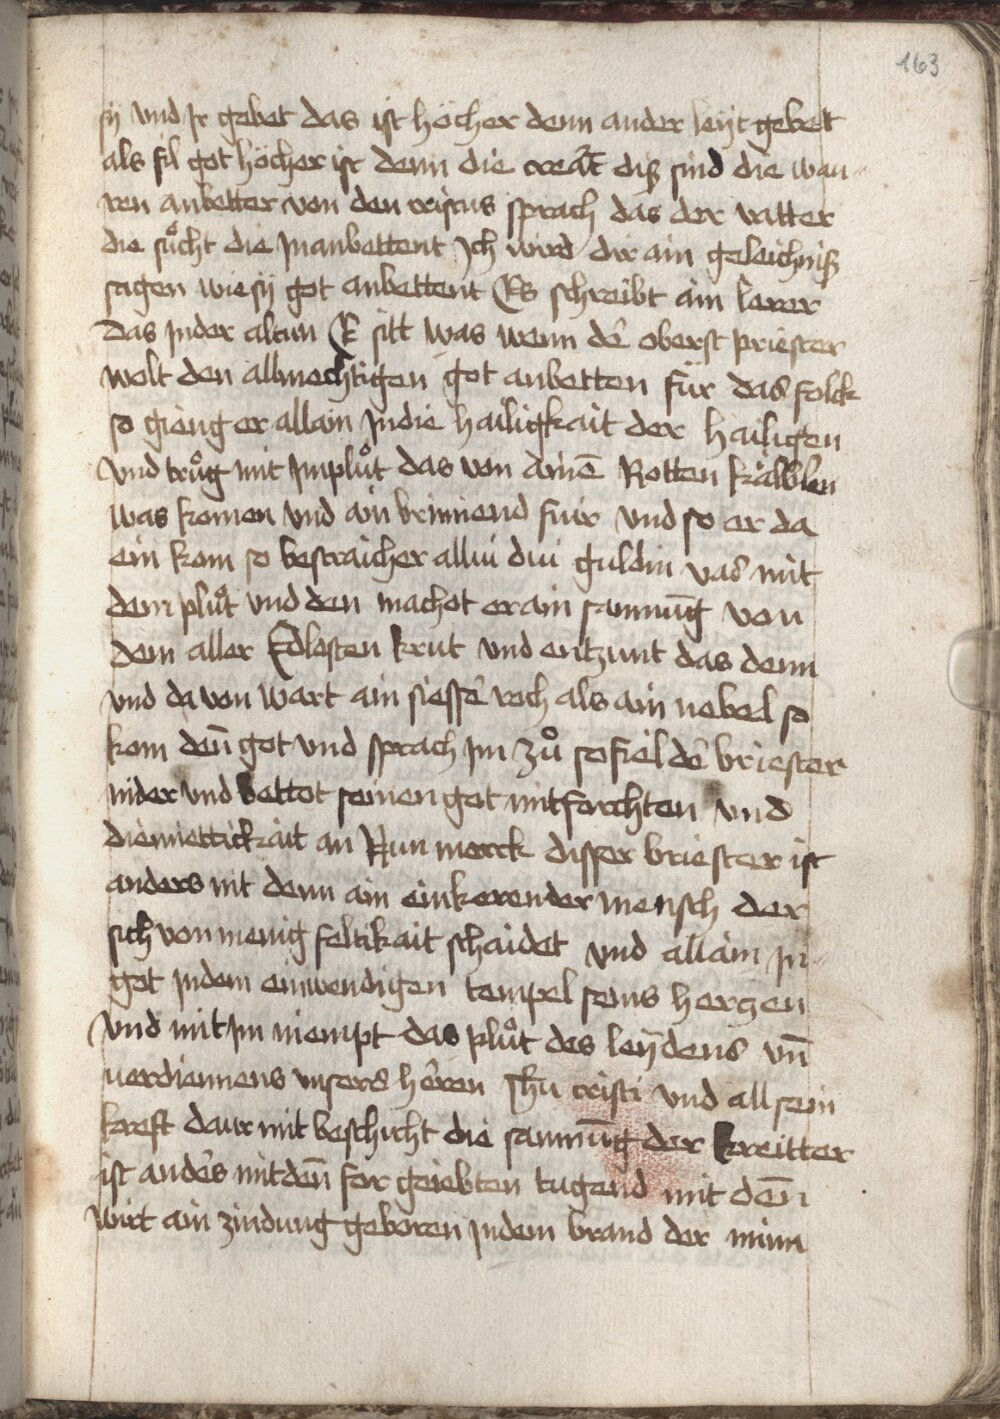 163
sÿ vnd Ir gebet das ist höcher denn ander leÿt gebett
als fil got höcher ist denn die creat̄ diß sind die wau
ren anbetter von den cristus sprach das der vatter
die sůcht die In anbettent Ich wird dir ain geleichniß
sagen wie sÿ got anbettent Es schreibt ain lerer
Das In der altun E sitt was wenn de᷑ oberst priester
wolt den allmechtigen got anbetten für das folck
so gieng er allain In die hailigkait der hailigen
vnd trůg mit Im plůt das von ainē Rotten kälblen
was komen vnd ain brinnend fuir vnd so er da
ein kom so bestraich er allui dui guldin vas mit
dem plůt vnd den machot er ain samnūg von
dem aller Edlesten krut vnd entzunt das denn
vnd da von wart ain siesse᷑ roch als ain nebel so
kom deñ got vnd sprach Im zů so fiel de᷑ briester
nider vnd bettot seinen got mit forchten vnd
diemiettickait an Nun merck disser briester ist
anders nit denn ain einkerender mensch der
sich von menig feltikait schaidet vnd allain In
got In dem einwendigen tempel seins hertzen
vnd mit Im niempt das plůt des leÿdens vn̄
uerdiennens vnsers he᷑ren Jhū cristi vnd all sein
kreft daur mit beschicht die samnūg der kreitter
ist ande᷑s nit deñ for geiebten tugend mit deñ
wirt ain zindung geboren In dem brand der minn